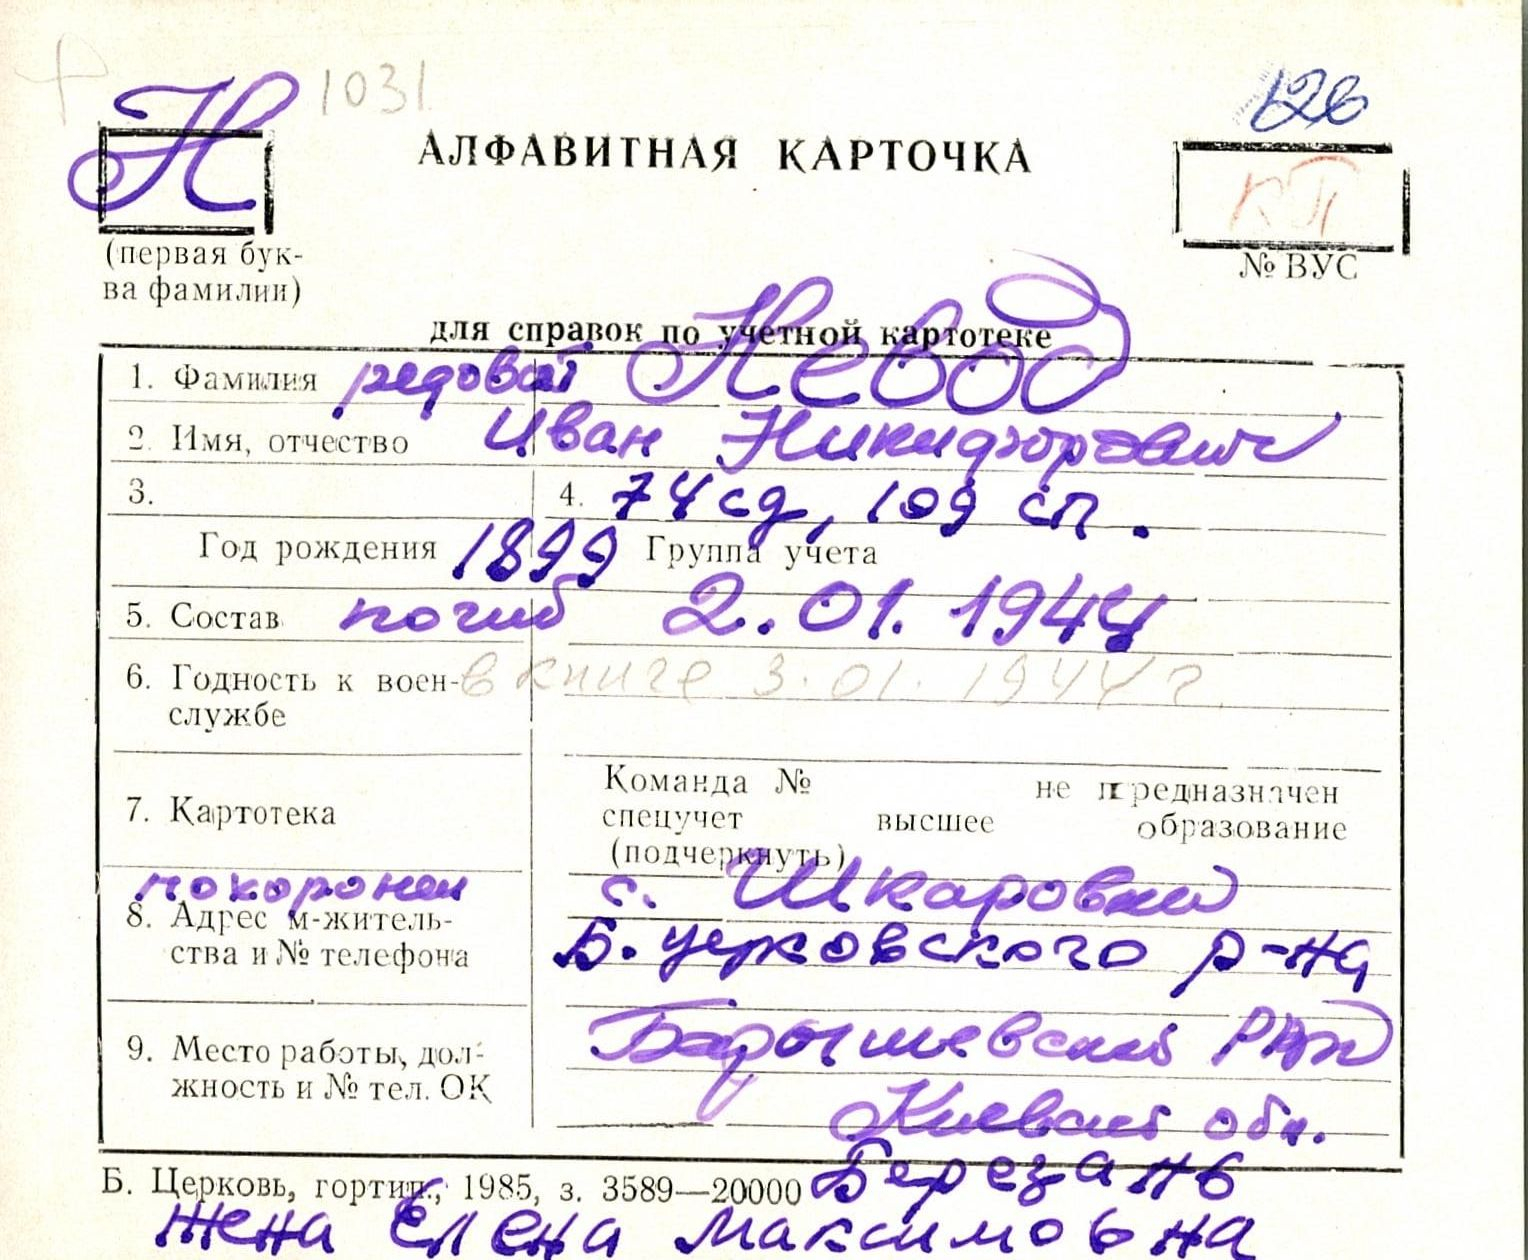 Н 1031 126
АЛФАВИТНАЯ КАРТОЧКА
КП
(первая бук-
ва фамилии)
№ ВУС
для справок по учетной картотеке
1. Фамилия рядовой Невод
2. Имя, отчество Иван Никифорович
3. 4. 74 сд, 109 сп.
Год рождения 1899 Группа учета
5. Состав погиб 2.01.1944
6. Годность к воен- в книге 3.01.1944 г.
службе
7. Картотека
Команда № не предназначен
спецучет высшее образование
(подчеркнуть)
похоронен с. Шкаровка
8. Адрес м-житель-
ства и № телефона
Б. Церковского р-на
9. Место работы, дол-
жность и № тел. ОК
Барышевский РВК
Киевской обл.
Б. Церковь, гортип., 1985, з. 3589—20000 Березань
жена Елена Максимовна